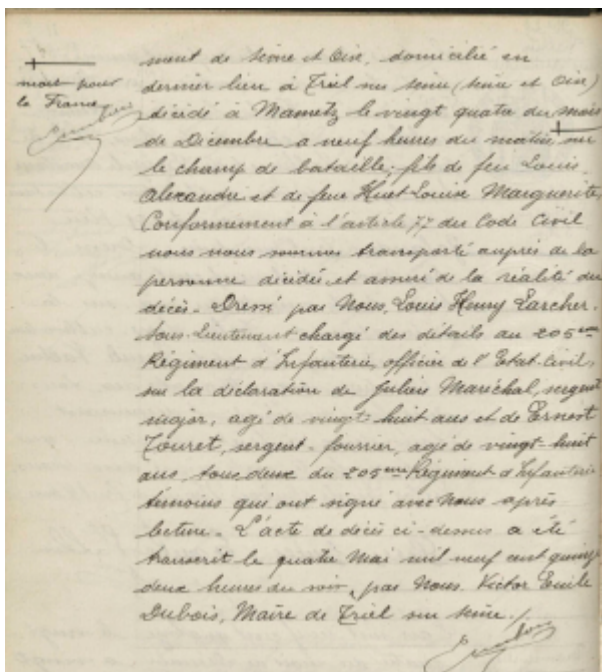 mort pour
la France
ment de Seine et Oise, domicilié en
dernier lieu à Triel sur Seine (Seine et Oise)
décidé à Mametz le vingt quatre du mois
de Décembre a neuf heures du matin sur
le champ de bataille; fils de feu Louis
Alexandre et de feue Huet Louise Marguerite,
Conformément à l'article 77 du Code Civil
nous nous sommes transporté auprès de la
personne décidée et assuré de la réalité du
décès. Dressé par Nous, Louis Henry Larcher.
Sous-Lieutenant chargé des détails au 205eme
Régiment d'Infanterie, officier de l'Etat-Civil,
sur la déclaration de Julien Maréchal, sergent
major, agé de vingt-huit ans et de Ernest
Touret, sergent-fourrier, agé de vingt-huit
ans, tous deux du 205eme Régiment d'Infanterie
témoins qui ont signé avec Nous après
lecture. L'acte de décès ci-dessus a été
transcrit le quatre Mai mil neuf cent quinze
deux heures du soir, par Nous Victor Emile
Dubois, Maire de Triel sur Seine.